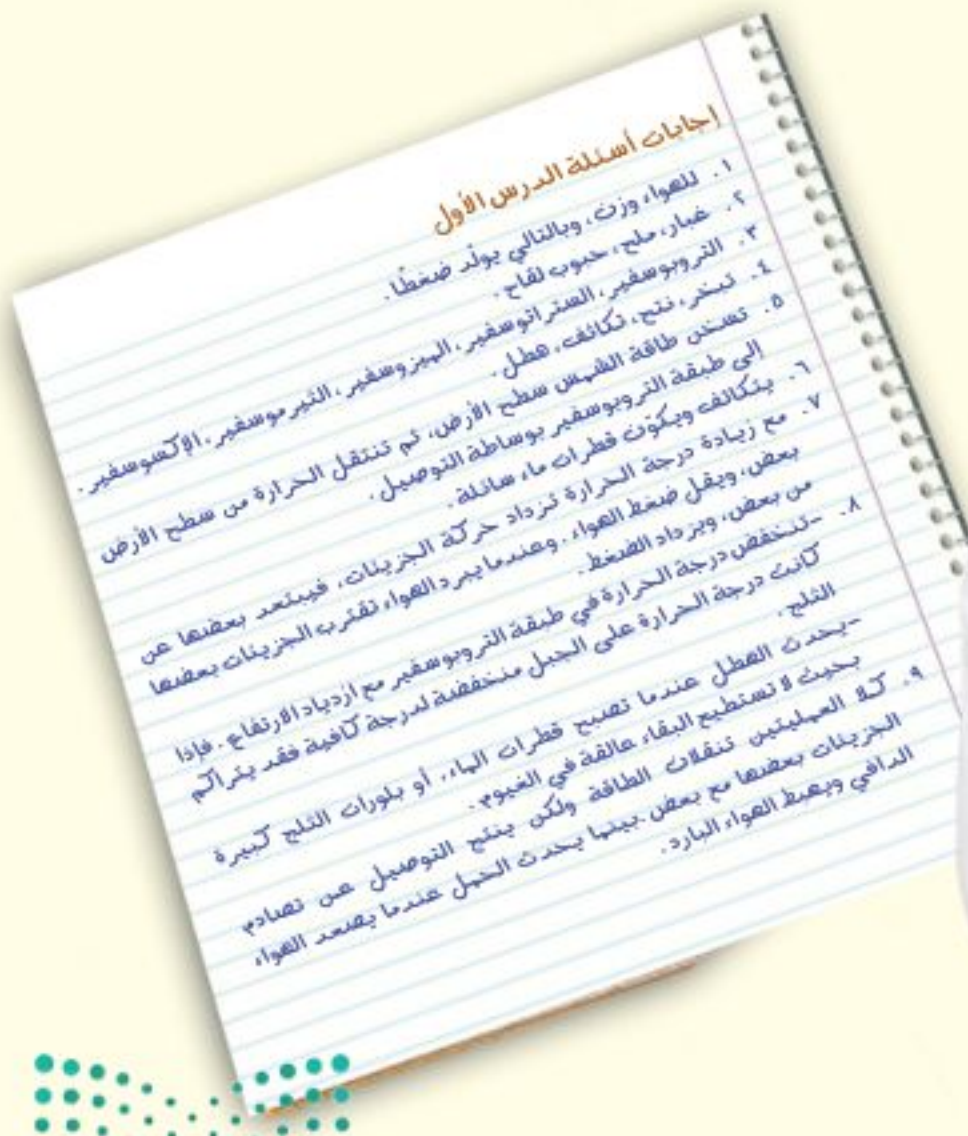 إجابات أسئلة الدرس الأول
١. للهواء وزن، وبالتالي يولّد ضغطًا.
٢. غبار، ملح، حبوب لقاح.
٣. التروبوسفير، الستراتوسفير، الميزوسفير، الثيرموسفير، الإكسوسفير.
٤. تبخر، نتح، تكاثف، هطل.
٥. تسخن طاقة الشمس سطح الأرض، ثم تنتقل الحرارة من سطح الأرض
إلى طبقة التروبوسفير بوساطة التوصيل.
٦. يتكاثف ويكون قطرات ماء سائلة.
٧. مع زيادة درجة الحرارة تزداد حركة الجزيئات، فيبتعد بعضها عن
بعض، ويقل ضغط الهواء. وعندما يبرد الهواء تقترب الجزيئات بعضها
من بعض، ويزداد الضغط.
٨. -تنخفض درجة الحرارة في طبقة التروبوسفير مع ازدياد الارتفاع. فإذا
كانت درجة الحرارة على الجبل منخفضة لدرجة كافية فقد يتراكم
الثلج.
-يحدث الهطل عندما تصبح قطرات الماء، أو بلورات الثلج كبيرة
بحيث لا تستطيع البقاء عالقة في الغيوم.
٩. كلا العمليتين تنقلان الطاقة ولكن ينتج التوصيل عن تصادم
الجزيئات بعضها مع بعض. بينما يحدث الحمل عندما يصعد الهواء
الدافئ ويهبط الهواء البارد.